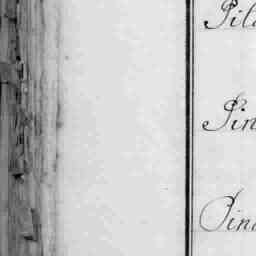 Pil
Pin
Pin